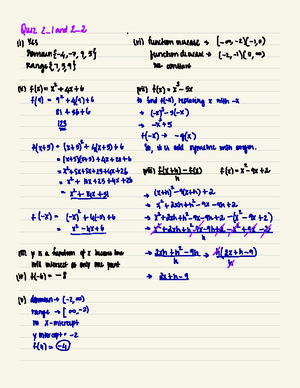 Quiz 2_1 and 2_2
(i) Yes
Domain {-4, -7, 9, 5}
Range {7, 5, 9}
(ii) f(x) = x² + 4x + 6
f(9) = 9² + 4(9) + 6
81 + 36 + 6
123
f(x+5) = (x+5)² + 4(x+5) + 6
= (x+5)(x+5) + 4x + 20 + 6
= x² + 5x + 5x + 25 + 4x + 26
= x² + 14x + 25 + 26
= x² + 14x + 51
f(-x) = (-x)² + 4(-x) + 6
= x² - 4x + 6
(iii) y is a function of x because line
will intersect at only one point
(iv) f(-6) = -8
(v) domain → (-2, ∞)
range → [∞, -2)
no x-intercept
y intercept = -2
f(4) = -4
(vi) function increase → (-∞, -2)(-1, 0)
function decrease → (-2, -1)(0, ∞)
no constant
(vii) f(x) = x³ - 5x
to find f(-x), replacing x with -x
→ (-x)³ - 5(-x)
→ -x³ + 5
f(-x) → -f(x)
So, it is odd symmetric with origin.
(viii) f(x+h) - f(x) / h f(x) = x² - 9x + 2
→ (x+h)² - 9(x+h) + 2
→ x² + 2xh + h² - 9x - 9h + 2
→ x² + 2xh + h² - 9x - 9h + 2 - (x² - 9x + 2)
→ x² + 2xh + h² - 9x - 9h + 2 - x² + 9x - 2 / h
→ 2xh + h² - 9h / h → h(2x + h - 9) / h
→ 2x + h - 9